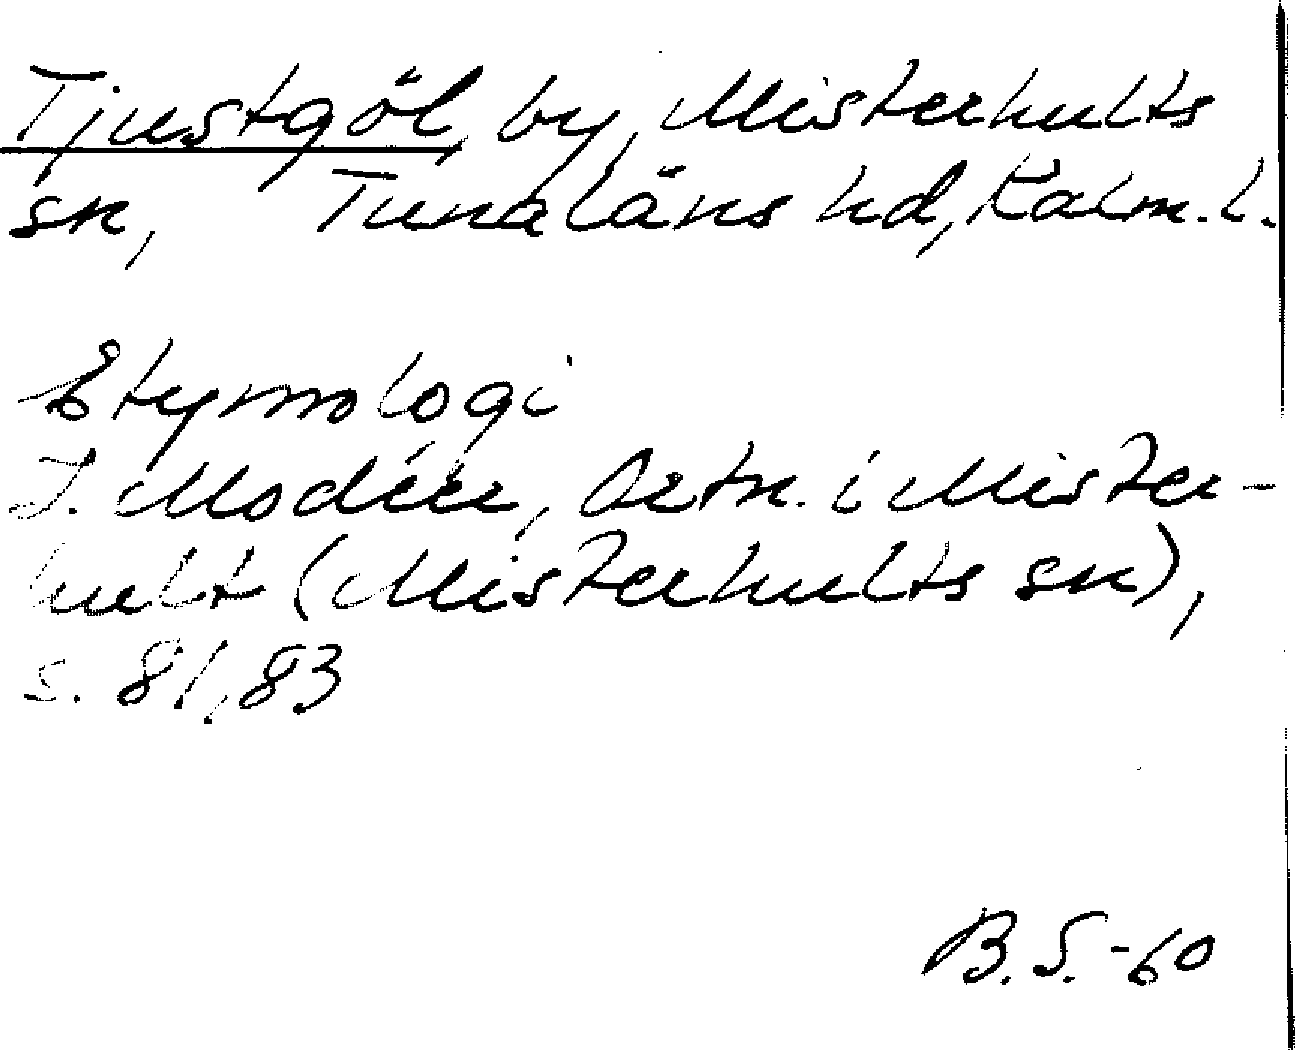 Tjustgöl, by, Misterhults
sn, Tunaläns hd, Kalm. l.
Etymologi
I. Modéer, Ortn. i Mister-
hult (Misterhults sn),
s. 81, 83
B. S. -60